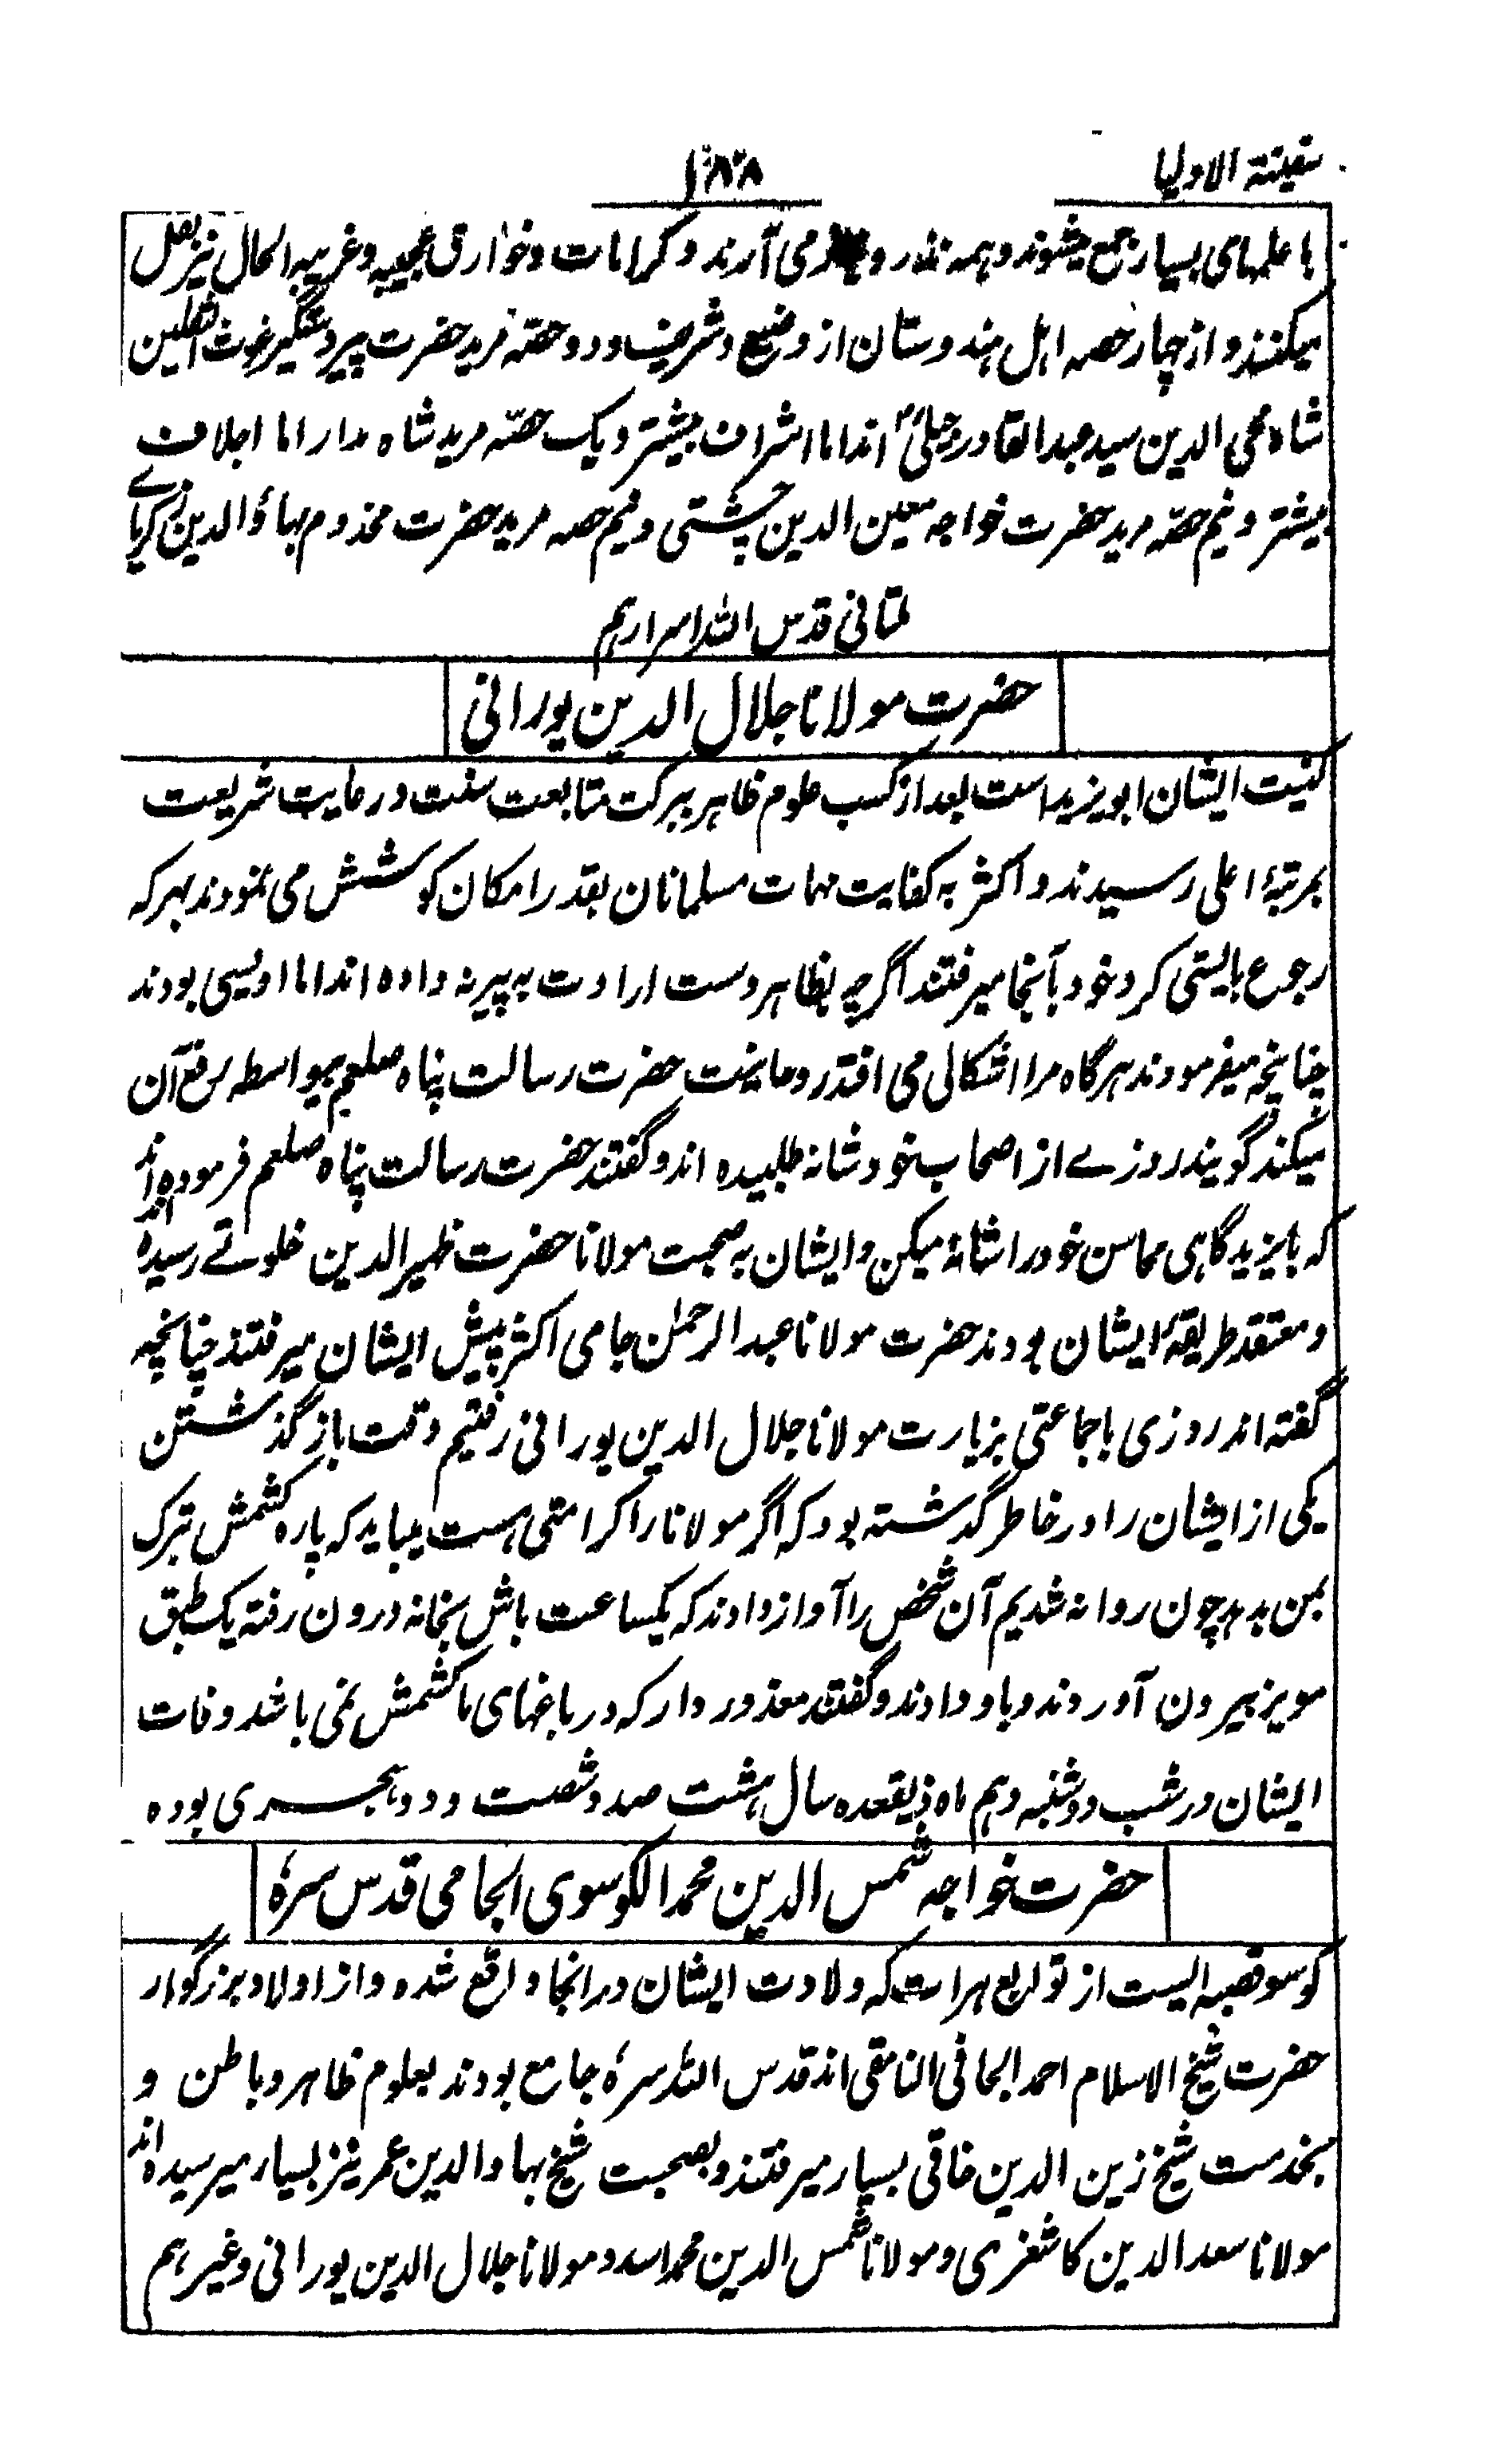 سفینة الاولیا
۱۸۸
با علمهای بسیار جمع میشوند و همه نذر و نیاز می آرند و کرامات و خوارق عجیبه و غریبه الحال نیز نقل
میکنند و از چهار حصه اهل هندوستان از وضیع و شریف و دو حصه مرید حضرت پیر دستگیر غوث الثقلین
شاه محی الدین سید عبدالقادر جیلی اند اما اشراف بیشتر و یک حصه مرید شاه مدار اما اجلاف
بیشتر و نیم حصه مرید حضرت خواجه معین الدین چشتی و نیم حصه مرید حضرت مخدوم بهاؤالدین زکریاے
ملتانی قدس الله اسرارهم
حضرت مولانا جلال الدین پورانی
کنیت ایشان ابویزید است بعد از کسب علوم ظاهر ببرکت متابعت سنت و رعایت شریعت
بمرتبهٔ اعلی رسیدند و اکثر به کفایت مهمات مسلمانان بقدر امکان کوشش می نمودند بهر که
رجوع بایستی کرد خود بآنجا میرفتند اگرچه بظاهر دست ارادت به پیر نه داده اند اما اویسی بودند
چنانچه میفرمودند هرگاه مرا اشکالی می افتد روحانیت حضرت رسالت پناه صلعم بیواسطه رفع آن
میکند گویند روزے از اصحاب خود شانه طلبیده اند و گفتند حضرت رسالت پناه صلعم فرموده اند
که بایزید گاهی محاسن خود را شانهٔ میکن و ایشان به صحبت مولانا حضرت ظهیر الدین خلوتے رسیده اند
و معتقد طریقهٔ ایشان بودند حضرت مولانا عبد الرحمٰن جامی اکثر پیش ایشان میرفتند چنانچه
گفته اند روزی با جماعتی بزیارت مولانا جلال الدین پورانی رفتیم وقت باز گذشتن
یکی از ایشان را در خاطر گذشته بود که اگر مولانا را کرامتی هست میباید که پاره کشمش تبرک
بمن بدهد چون روانه شدیم آن شخص را آواز دادند که یکساعت باش بخانه درون رفته یک طبق
مویز بیرون آوردند و باو دادند و گفتند معذور دار که در باغهای ما کشمش نمی باشد وفات
ایشان در شب دوشنبه دهم ماه ذیقعده سال هشت صد و شصت و دو هجری بوده
حضرت خواجه شمس الدین محمد الکوسوی الجامی قدس سرهٗ
کوسو قصبه ایست از توابع هرات که ولادت ایشان در انجا واقع شده و از اولاد بزرگوار
حضرت شیخ الاسلام احمد الجامی النامقی اند قدس الله سرهٗ جامع بودند بعلوم ظاهر و باطن و
بخدمت شیخ زین الدین خافی بسیار میرفتند و بصحبت شیخ بهاوالدین عمر نیز بسیار میرسیده اند
مولانا سعد الدین کاشغری و مولانا شمس الدین محمد اسد و مولانا جلال الدین پورانی و غیرهم